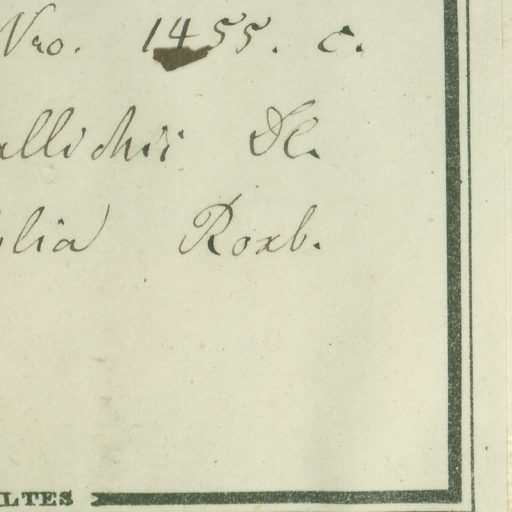 Nro. 1455. c.
allichii Dl.
lia Roxb.
LTES